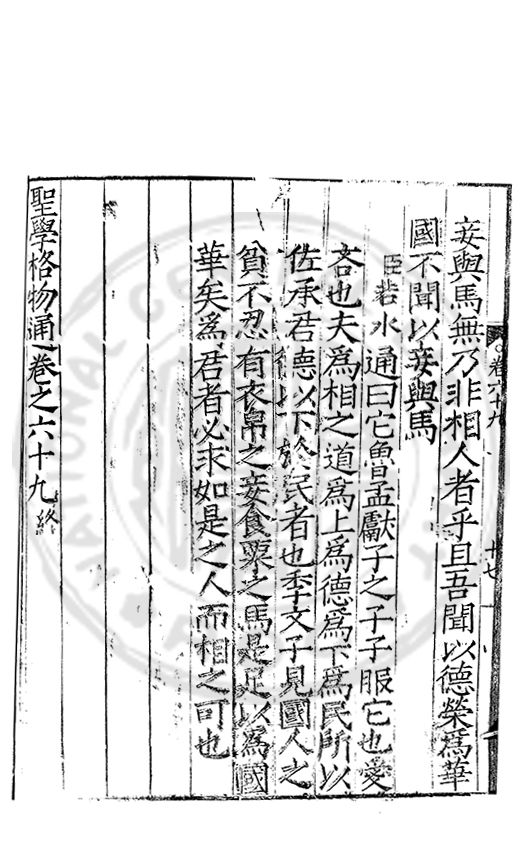 卷六十九
十七
妾與馬無乃非相人者乎且吾聞以德榮為華
國不聞以妾與馬
臣若水通曰它魯孟獻子之子子服它也愛
吝也夫為相之道為上為德為下為民所以
佐承君德以下於民者也季文子見國人之
貧不忍有衣帛之妾食粟之馬是足以為國
華矣為君者必求如是之人而相之可也
聖學格物通卷之六十九 終
NATIONAL CE